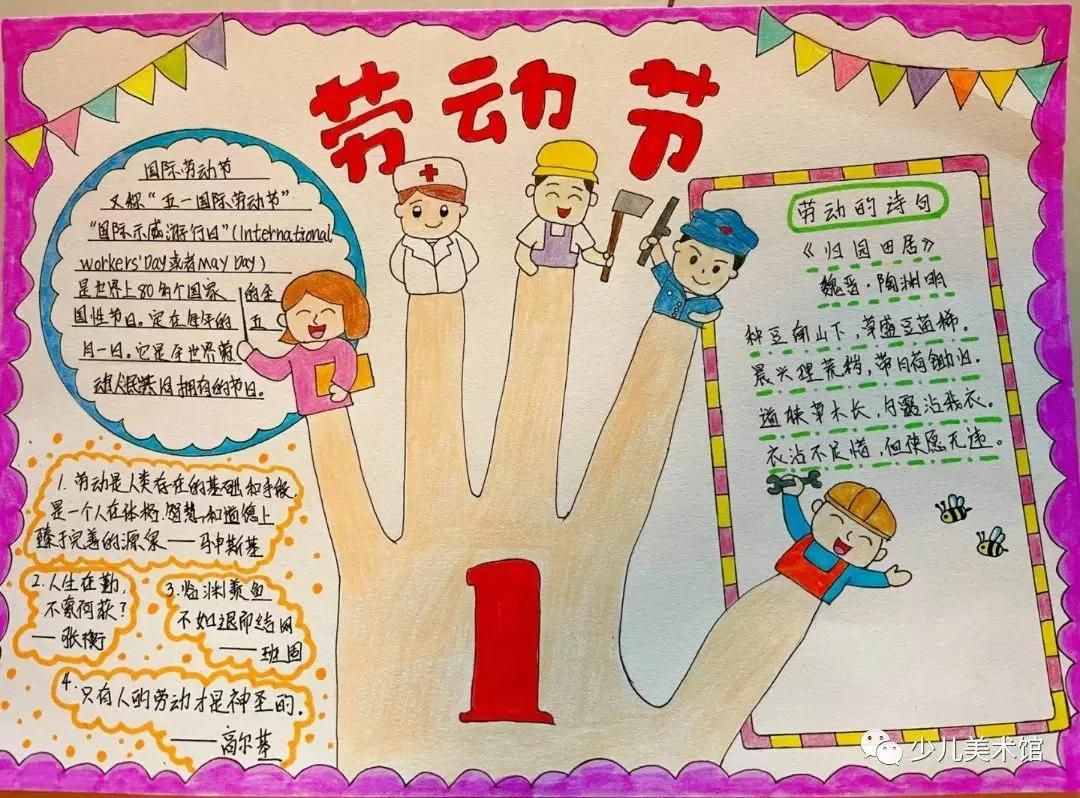 劳动节
国际劳动节
又称“五一国际劳动节”
“国际示威游行日”(International
workers'Day或者May Day)
是世界上80多个国家的全
国性节日。定在每年的五
月一日。它是全世界劳
动人民共同拥有的节日。
1. 劳动是人类存在的基础和手段,
是一个人在体格.智慧和道德上
臻于完善的源泉——马申斯基
2.人生在勤,
不索何获?
——张衡
3.临渊羡鱼
不如退而结网
——班固
4.只有人的劳动才是神圣的.
——高尔基
1
劳动的诗句
《归园田居》
魏晋·陶渊明
种豆南山下,草盛豆苗稀.
晨兴理荒秽,带月荷锄归.
道狭草木长,夕露沾我衣.
衣沾不足惜,但使愿无违.
少儿美术馆